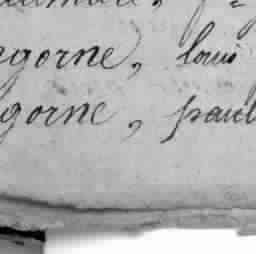 egorne, louis
gorne, paul